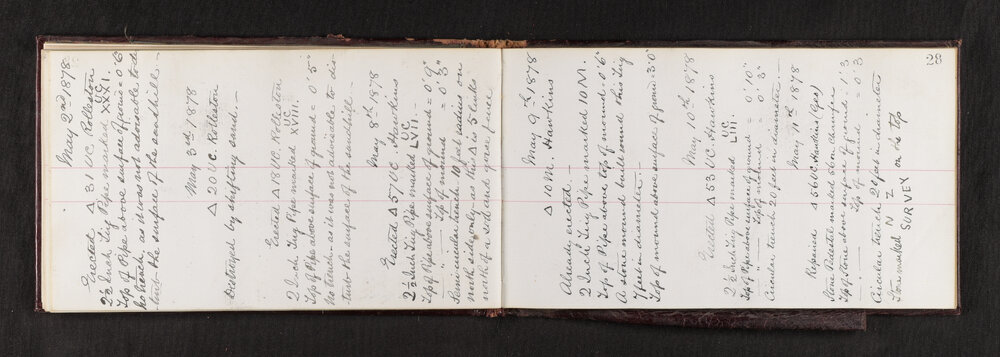 May 2nd 1878
Erected △ 31 U.C. Rolleston
2½ Inch Iron Pipe marked U.C. XXXI.
Top of Pipe above surface of ground = 0' 6"
No trench, as it was not advisable to dis-
turb the surface of the sandhill.
May 3rd 1878
△ 20 U.C. Rolleston
Destroyed by shifting sand.
Erected △ 18 U.C. Rolleston
2 Inch Iron Pipe marked U.C. XVIII.
Top of Pipe above surface of ground = 0' 5"
No trench, as it was not advisable to dis-
turb the surface of the sandhill
May 8th 1878
Erected △ 57 U.C. Hawkins
2½ Inch Iron Pipe marked U.C. LVII.
Top of Pipe above surface of ground = 0' 9"
" " Top of mound = 0' 3"
Semi circular trench 10 feet radius on
north side only, as this △ is 5 links
north of sod and gorse fence
28
May 9th 1878
△ 10 M. Hawkins
Already erected.
2 Inch Iron Pipe marked 10 M.
Top of Pipe above top of mound 0' 6"
A stone mound built round this Trig
7 feet in diameter.
Top of mound above surface of ground = 3' 0"
May 10th 1878
Erected △ 53 U.C. Hawkins
2½ Inch Iron Pipe marked U.C. LIII.
Top of Pipe above surface of ground = 0' 10"
" " Top of mound = 0' 3"
Circular trench 20 feet in diameter
May 11th 1878
Repaired △ 56 U.C. Hawkins
Stone Pedestal marked
Top of stone above surface of ground = 1' 3
" mound = 0' 3
Circular trench 20 feet in diameter
Stone marked N Z SURVEY on the top